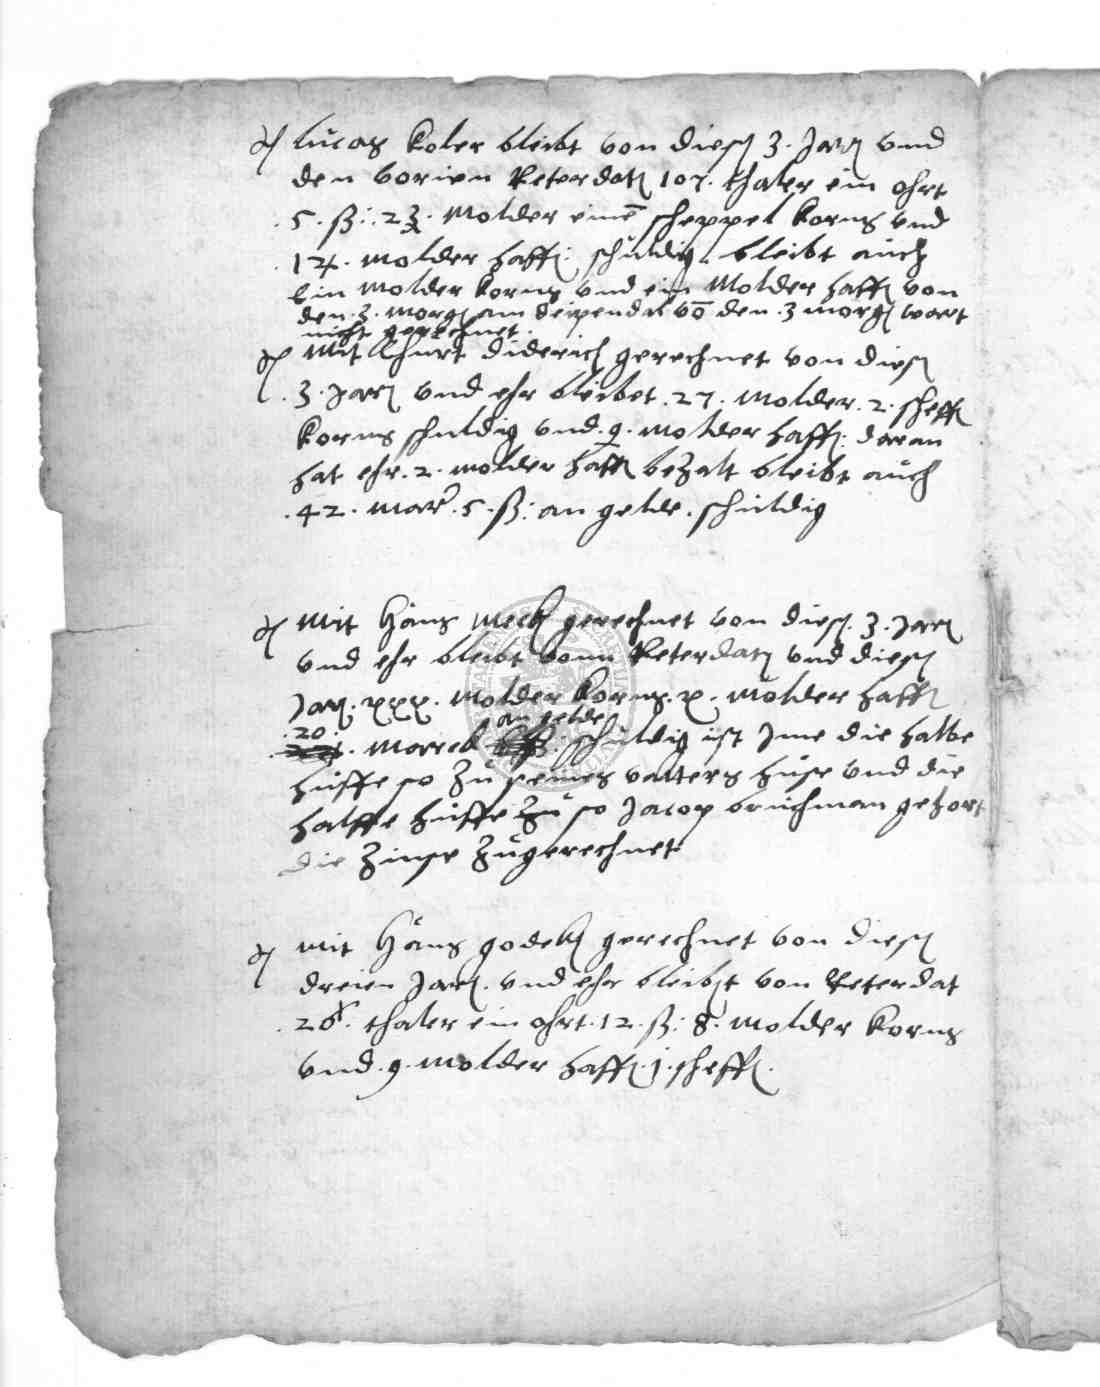 Lucas Koler bleibt von diesen 3. Jaren vnd
den vorien Reterdaten 107. thaler ein ohrt
. 5. ß: . 23. Molder einen scheppel korns vnd
. 14. molder haffern schuldig. bleibt auch
Ein Molder korns vnd ein Molder haffern von
den 3. morgen am von den 3 morgen wart
nicht gerechnet.
Mit Churt Diderich gerechnet von diesen
. 3. Jaren vnd ehr bleibet . 27. Molder . 2. scheffel
korns schuldig vnd . 9. molder haffern: daran
hat ehr . 2. molder haffern bezalt bleibt auch
. 42. marck . 5. ß: an gelde . schuldig
Mit Hans Meck gerechnet von diesen . 3. Jaren
vnd ehr bleibt vonn Reterdaten vnd diesen
Jaren . xxx. Molder korns . x. Molder haffern
an gelde
. 20.
. Marck schuldig ist Jme die halbe
huffe so zu seines vatters huse vnd die
halffe huffe zu so Jacop bruchman gehort
die Zinse zugerechnet
Mit Hans godeken gerechnet von diesen
dreien Jaren . vnd ehr bleibet von Reterdat
. 26. thaler ein ohrt . 12. ß: 8. Molder korns
vnd . 9. Molder haffern . j. scheffel .